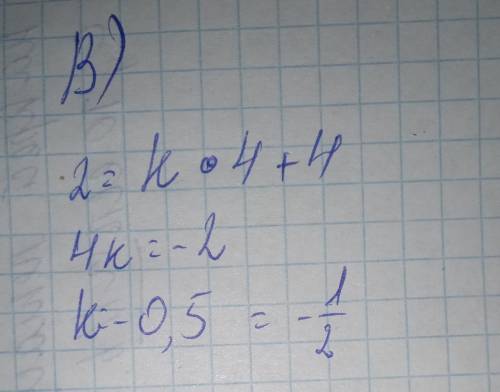 В)
2 = k • 4 + 4
4k = -2
k = -0,5 = -1/2